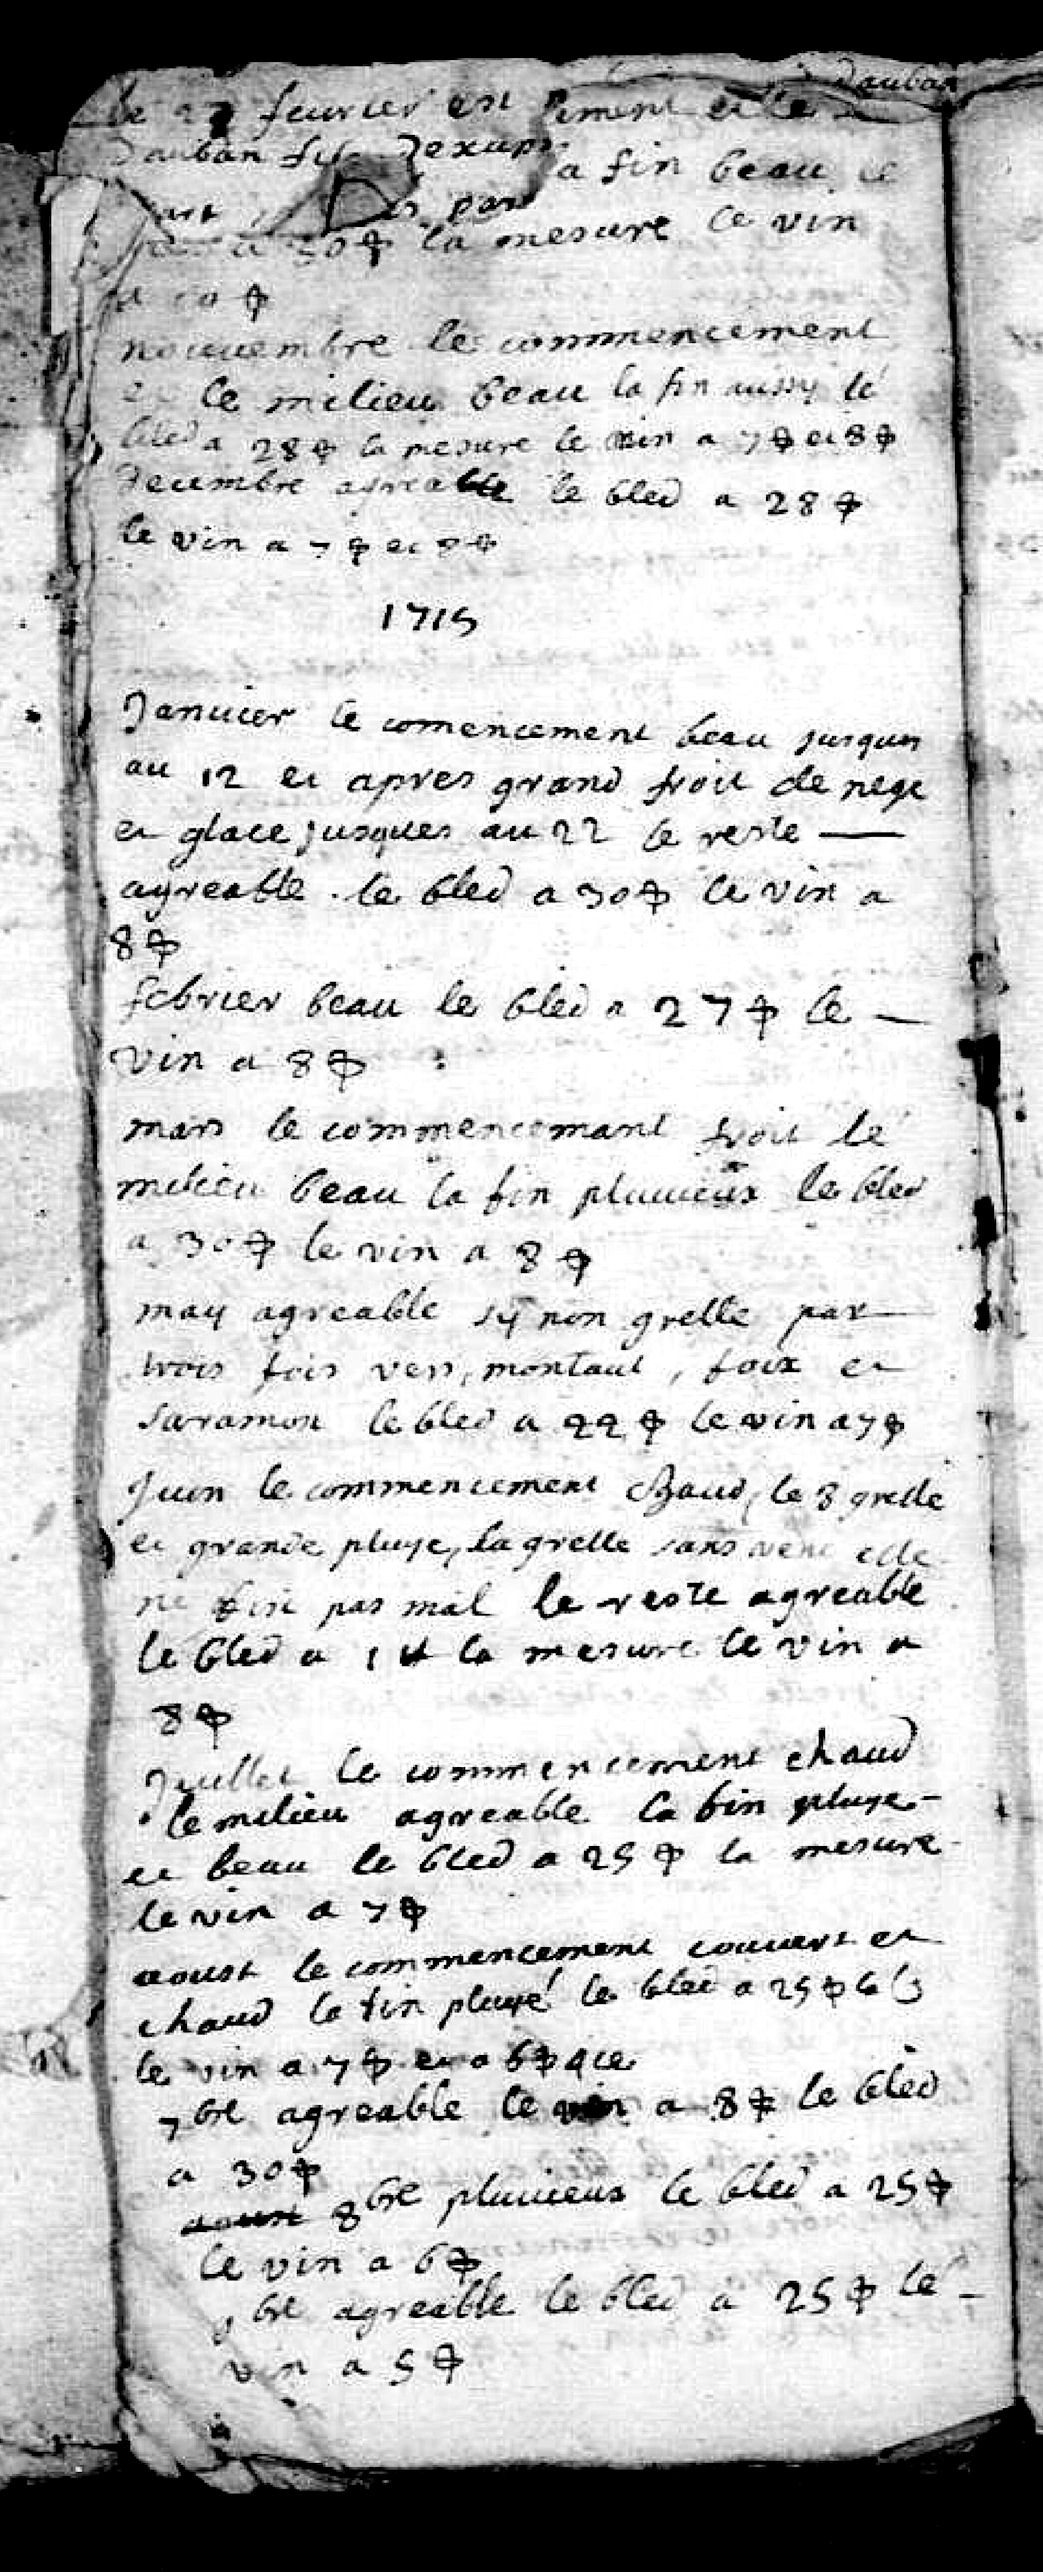 dauban
le 27 feurier est
dauban fils dexup
a fin beau le
par
a 30 ₶ la mesure le vin
a 10 ₶
nouuembre le commencement
et le milieu beau la fin aussy le
bled a 28 ₶ la mesure le vin a 7 ₶ et 8 ₶
decembre agreable le bled a 28 ₶
le vin a 7 ₶ et 8 ₶
1715
Januier le comencement beau jusques
au 12 et apres grand froit de nege
et glace jusques au 22 le reste —
agreable . le bled a 30 ₶ le vin a
8 ₶
febrier beau le bled a 27 ₶ le —
vin a 8 ₶
mars le commencemant froit le
milieu beau la fin pluuieux le bled
a 30 ₶ le vin a 8 ₶
may agreable sy non grelle par
trois fois vers, montaut, foix et
saramon le bled a 22 ₶ le vin a 7 ₶
Juin le commencement chaud, le 8 grelle
et grande pluye, la grelle sans vent elle
ne fit pas mal le reste agreable
le bled a 1 ₶ la mesure le vin a
8 ₶
Juillet le commencement chaud
le milieu agreable la fin pluye -
et beau le bled a 25 ₶ la mesure -
le vin a 7 ₶
aoust le commencement couuert et
chaud la fin pluye le bled a 25 ₶ la
le vin a 7 ₶ et a 6 ₶
7bre agreable le vin a 8 ₶ le bled
a 30 ₶
aoust 8bre pluuieux le bled a 25 ₶
le vin a 6 ₶
9bre agreable le bled a 25 ₶ le -
vin a 5 ₶